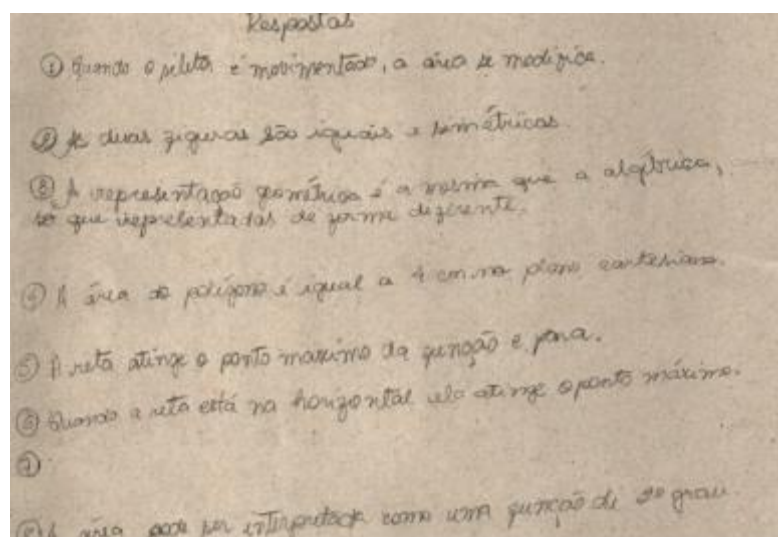 Respostas
① Quando o seletor é movimentado, a área se modifica.
② As duas figuras são iguais e simétricas.
③ A representação geométrica é a mesma que a algébrica,
só que representadas de forma diferente.
④ A área do polígono é igual a 4 cm no plano cartesiano.
⑤ A reta atinge o ponto maximo da função e para.
⑥ Quando a reta está na horizontal ela atinge o ponto máximo.
⑦
⑧ A área pode ser interpretada como uma função de 2º grau.